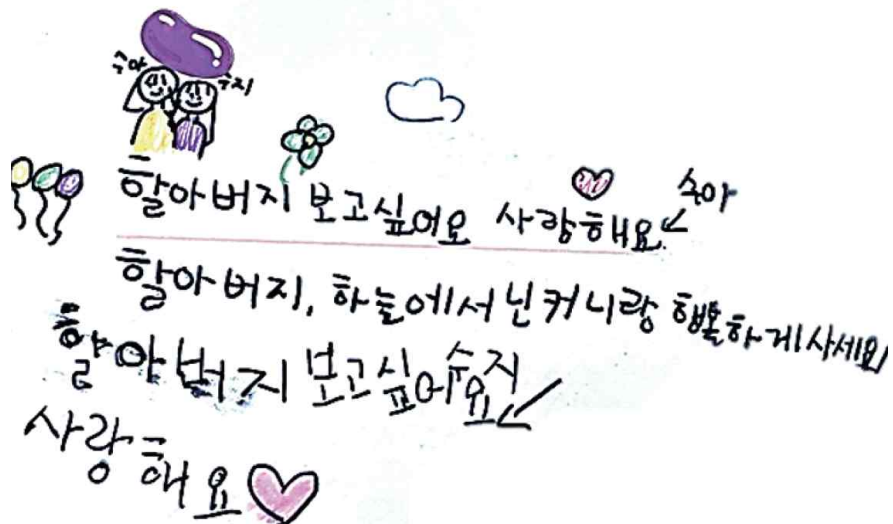 수아 수지
할아버지 보고싶어요 사랑해요 수아
할아버지, 하늘에서 닌커니랑 행복하게사세요!
할아벌지 보고싶어요 수지
사랑해요